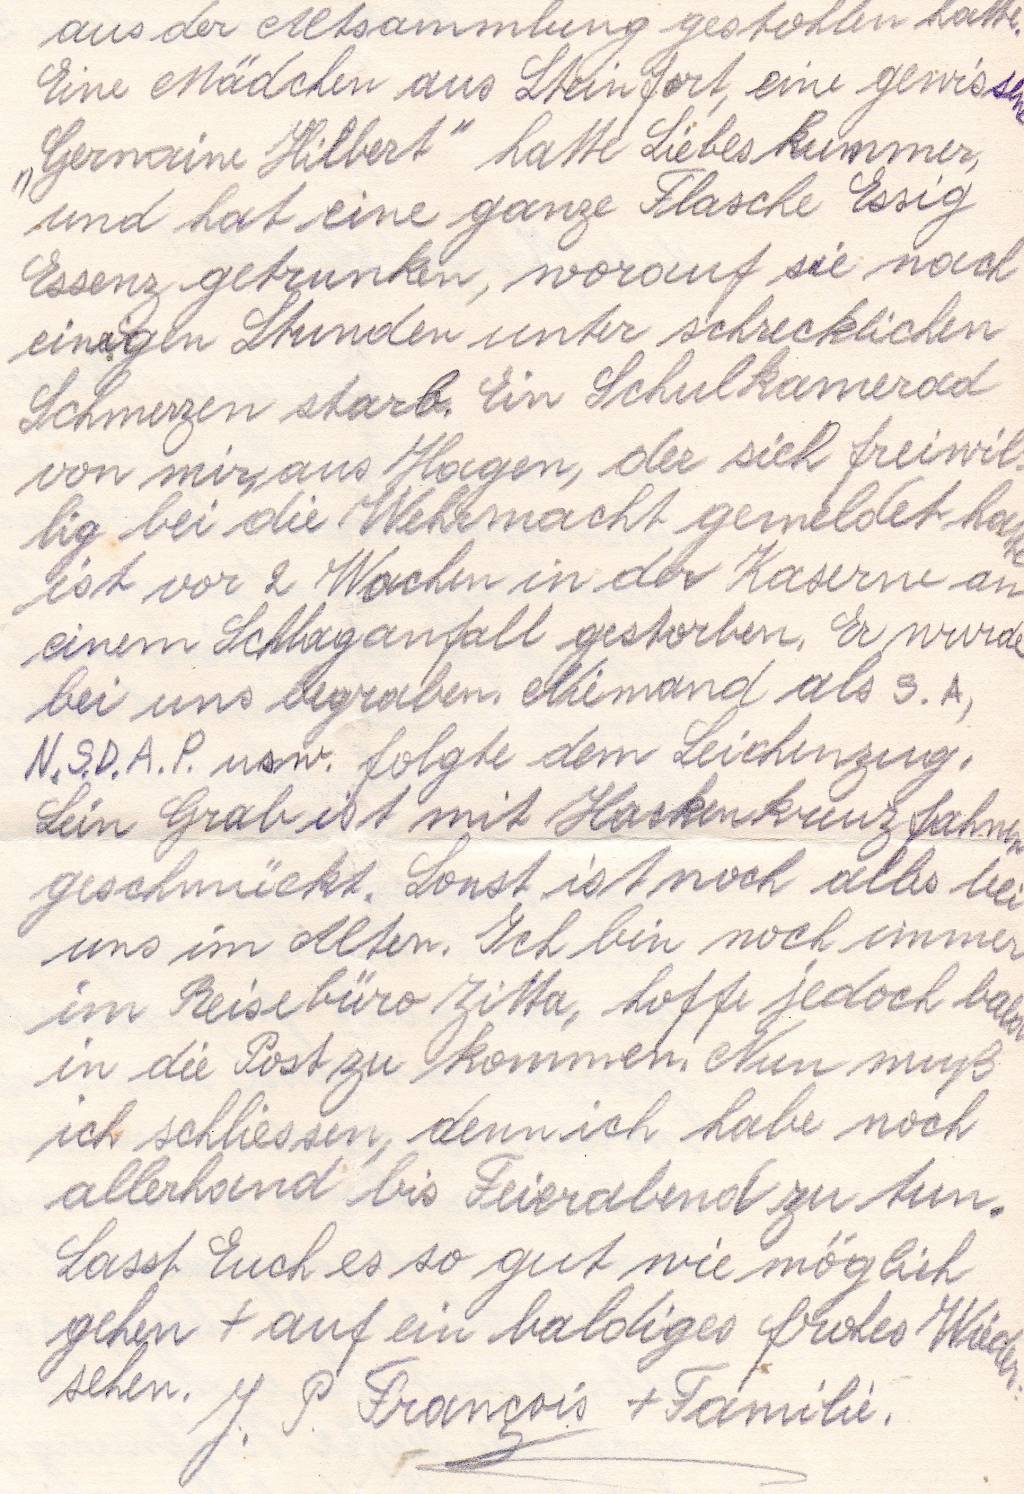 aus der Altsammlung gestohlen hatte.
Eine Mädchen aus Steinfort, eine gewissene
„Germaine Hilbert" hatte Liebeskummer,
und hat eine ganze Flasche Essig
Essenz getrunken, worauf sie nach
einigen Stunden unter schrecklichen
Schmerzen starb. Ein Schulkamerad
von mir, aus Hagen, der sich freiwil-
lig bei die Wehrmacht gemeldet hatte
ist vor 2 Wochen in der Kaserne an
einem Schlaganfall gestorben. Er wurde
bei uns begraben. Niemand als S.A,
N.S.D.A.P. usw. folgte dem Leichenzug.
Sein Grab ist mit Hackenkreuzfahnen
geschmückt. Sonst ist noch alles bei
uns im Alten. Ich bin noch immer
im Reisebüro Zitta, hoffe jedoch bald
in die Post zu kommen. Nun muß
ich schliessen, denn ich habe noch
allerhand bis Feierabend zu tun.
Lasst Euch es so gut wie möglich
gehen + auf ein baldiges frohes Wieder-
sehen. J. P. François + Familie.